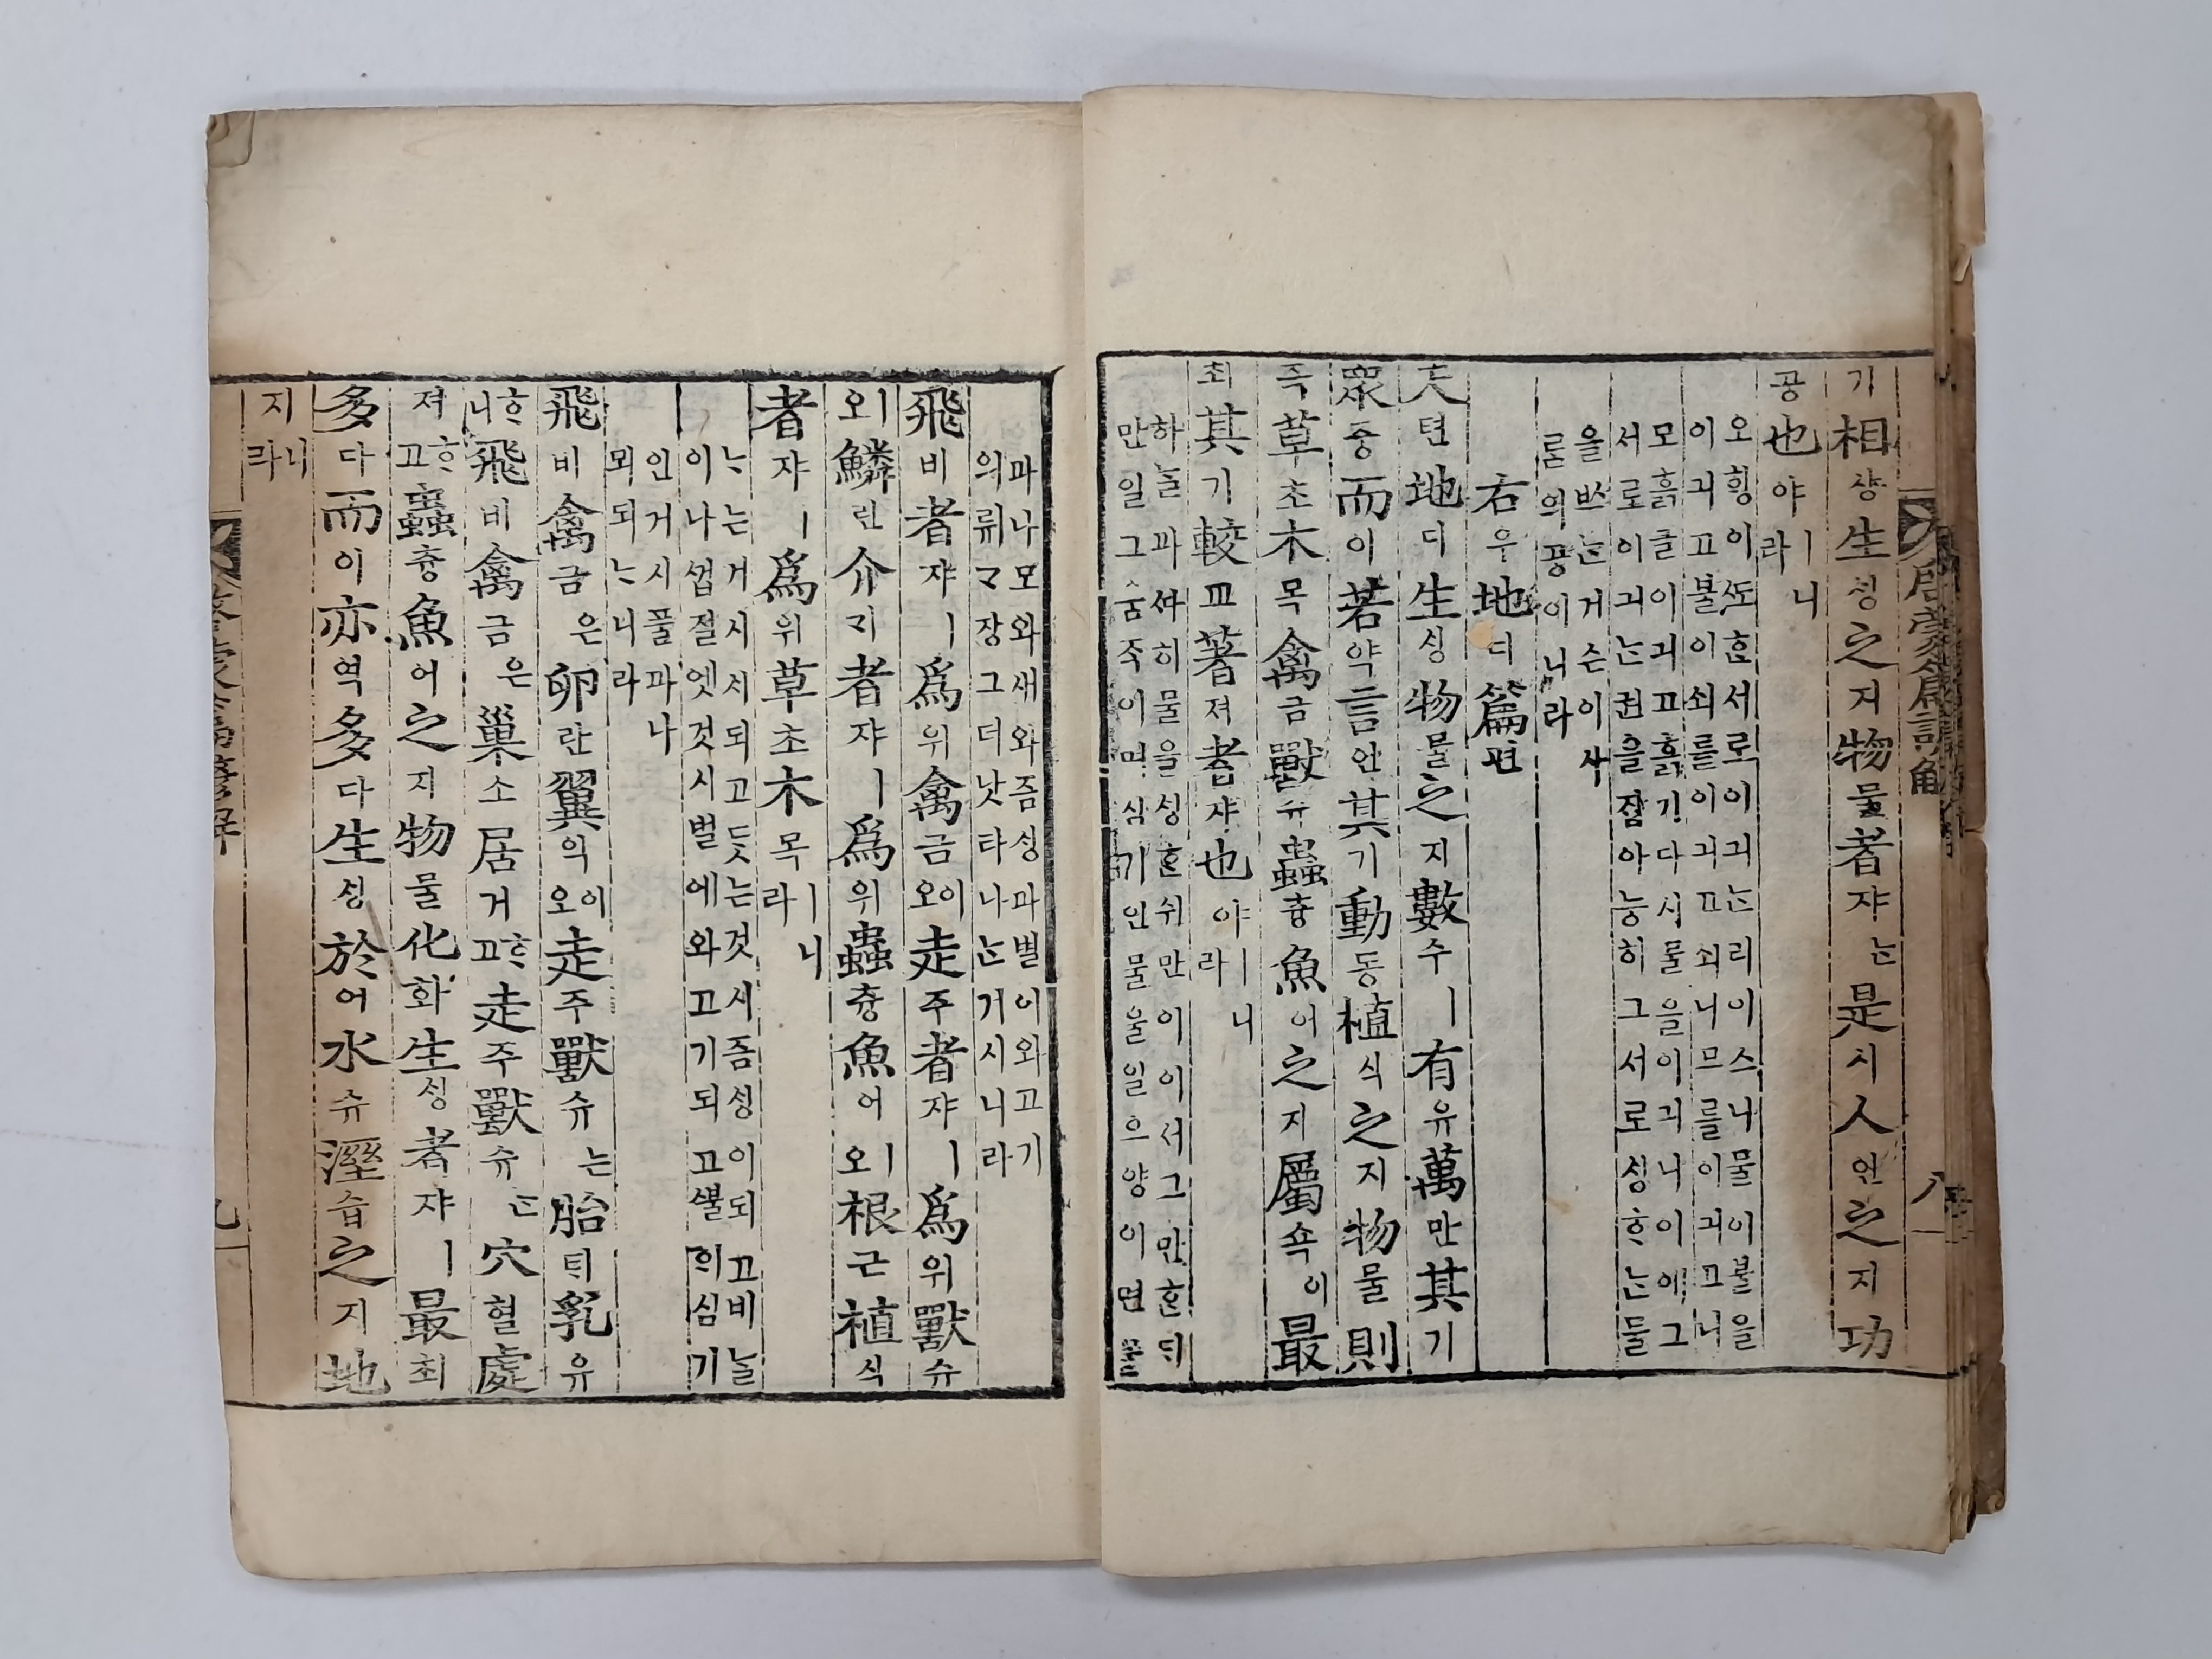 기相샹生ᄉᆡᆼ之지物물者쟈ᄂᆞᆫ是시人인之지功
공也야ㅣ니라
오ᄒᆡᆼ이ᄯᅩᄒᆞᆫ서로이긔ᄂᆞᆫ리이스니물이불을
이긔고불이쇠를이긔고쇠니므를이긔고니
모흙글이긔고흙기다시물을이긔니이에그
서로이긔ᄂᆞᆫ권을잡아능히그서로ᄉᆡᆼᄒᆞᄂᆞᆫ물
을ᄡᅳᄂᆞᆫ거슨이사
ᄅᆞᆷ의공이니라
右우地디篇편
天텬地디生ᄉᆡᆼ物물之지數수ㅣ有유萬만其기
衆즁而이若약言언其기動동植식之지物물則
즉草초木목禽금獸슈蟲츙魚어之지屬쇽이最
최其기較교著져者쟈也야ㅣ니라
하ᄂᆞᆯ과ᄯᅡ히물을ᄉᆡᆼᄒᆞᆫ쉬만이이서그만ᄒᆞᆫᄃᆡ
만일그움즉이며심기인물을일으양이면
파나모와새와즘ᄉᆡᆼ과벌이와고기
의뤼ᄀᆞ장그더낫타나ᄂᆞᆫ거시니라
飛비者쟈ㅣ爲위禽금이오走주者쟈ㅣ爲위獸슈
ㅣ오鱗린介ᄀᆡ者쟈ㅣ爲위蟲츙魚어ㅣ오根근植식
者쟈ㅣ爲위草초木목ㅣ니라
ᄂᆞ는거시시되고듯는것시즘ᄉᆡᆼ이되고비늘
이나껍절엣것시벌에와고기되고ᄲᅮᆯ희심기
인거시풀과나
뫼되ᄂᆞ니라
飛비禽금은卵란翼익이오走주獸슈는胎ᄐᆡ乳유
ᄒᆞ니飛비禽금은巢소居거ᄒᆞ고走주獸슈ᄂᆞᆫ穴혈處
져ᄒᆞ고蟲츙魚어之지物물化화生ᄉᆡᆼ者쟈ㅣ最최
多다而이亦역多다生ᄉᆡᆼ於어水슈溼습之지地
지니라